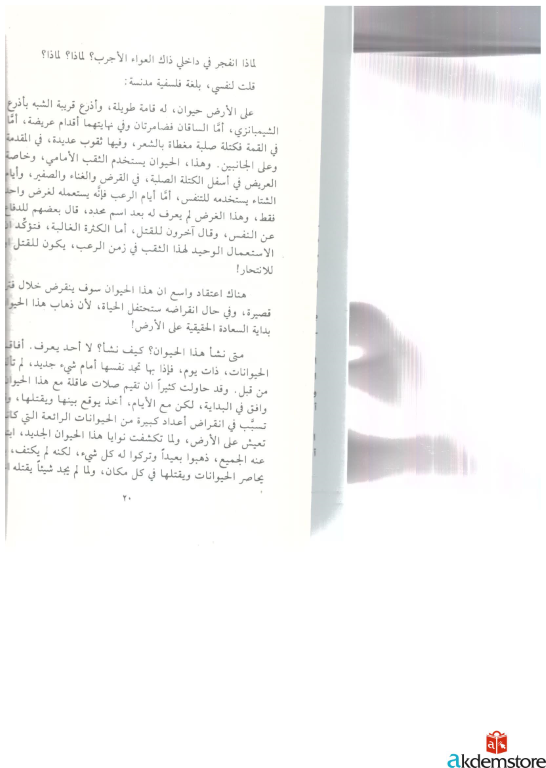 لماذا انفجر في داخلي ذاك العواء الأجرب؟ لماذا؟ لماذا؟
قلت لنفسي، بلغة فلسفية مدنسة:
على الأرض حيوان، له قامة طويلة، وأذرع قريبة الشبه بأذرع
الشيمبانزي، أمَّا الساقان فضامرتان وفي نهايتهما أقدام عريضة، أمَّا
في القمة فكتلة صلبة مغطاة بالشعر، وفيها ثقوب عديدة، في المقدمة
وعلى الجانبين. وهذا، الحيوان يستخدم الثقب الأمامي، وخاصة
العريض في أسفل الكتلة الصلبة، في القرض والغناء والصفير، وأيام
الشتاء يستخدمه للتنفس، أمَّا أيام الرعب فإنَّه يستعمله لغرض واحد
فقط، وهذا الغرض لم يعرف له بعد اسم محدد، قال بعضهم للدفاع
عن النفس، وقال آخرون للقتل، أما الكثرة الغالبة، فتؤكّد ان
الاستعمال الوحيد لهذا الثقب في زمن الرعب، يكون للقتل
للانتحار!
هناك اعتقاد واسع ان هذا الحيوان سوف ينقرض خلال
قصيرة، وفي حال انقراضه ستحتفل الحياة، لأن ذهاب هذا
بداية السعادة الحقيقية على الأرض!
متى نشأ هذا الحيوان؟ كيف نشأ؟ لا أحد يعرف.
الحيوانات، ذات يوم، فإذا بها تجد نفسها أمام شيء جديد، لم
من قبل. وقد حاولت كثيراً ان تقيم صلات عاقلة مع هذا الحيوان
وافق في البداية، لكن مع الأيام، أخذ يوقع بينها ويقتلها،
تسبَّب في انقراض أعداد كبيرة من الحيوانات الرائعة التي
تعيش على الأرض، ولما تكشفت نوايا هذا الحيوان الجديد،
عنه الجميع، ذهبوا بعيداً وتركوا له كل شيء، لكنه لم يكتف،
يحاصر الحيوانات ويقتلها في كل مكان، ولما لم يجد شيئاً يقتله
٢٠
akdemstore